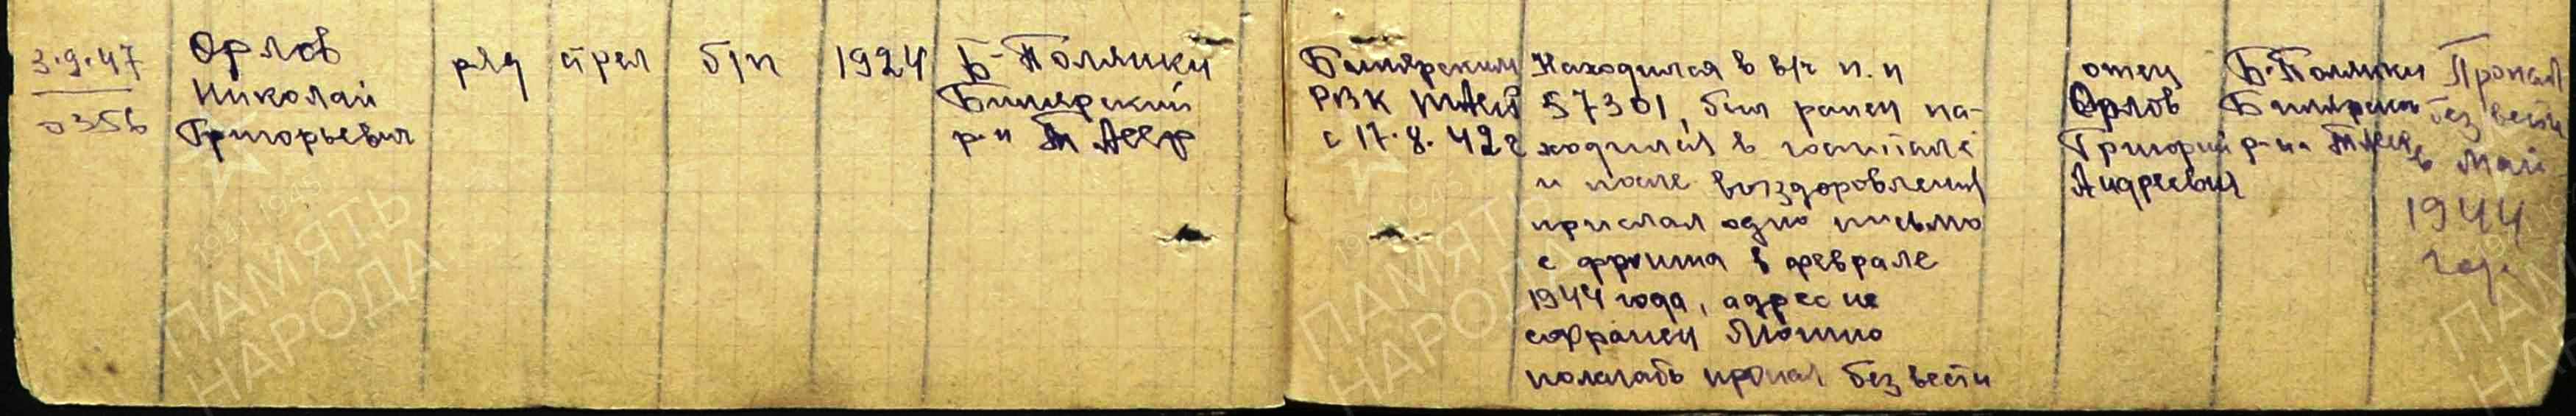 3.9.47
0356
Орлов
Николай
Григорьевич
ряд
стрел
б/п
1924
Б-Полянки
Билярский
р-н ТАССР
Билярским
РВК ТАССР
с 17.8.42г
Находился в в/ч п.п
57301, был ранен на-
ходился в госпитале
и после выздоровления
прислал одно письмо
с фронта в феврале
1944 года, адрес не
сохранен Можно
полагать пропал без вести
отец
Орлов
Григорий
Андреевич
Б-Полянки
Билярска
р-на ТАССР
Пропал
без вести
в май
1944
год
1941 1945
ПАМЯТЬ
НАРОДА
1941 1945
ПАМЯТЬ
НАРОДА